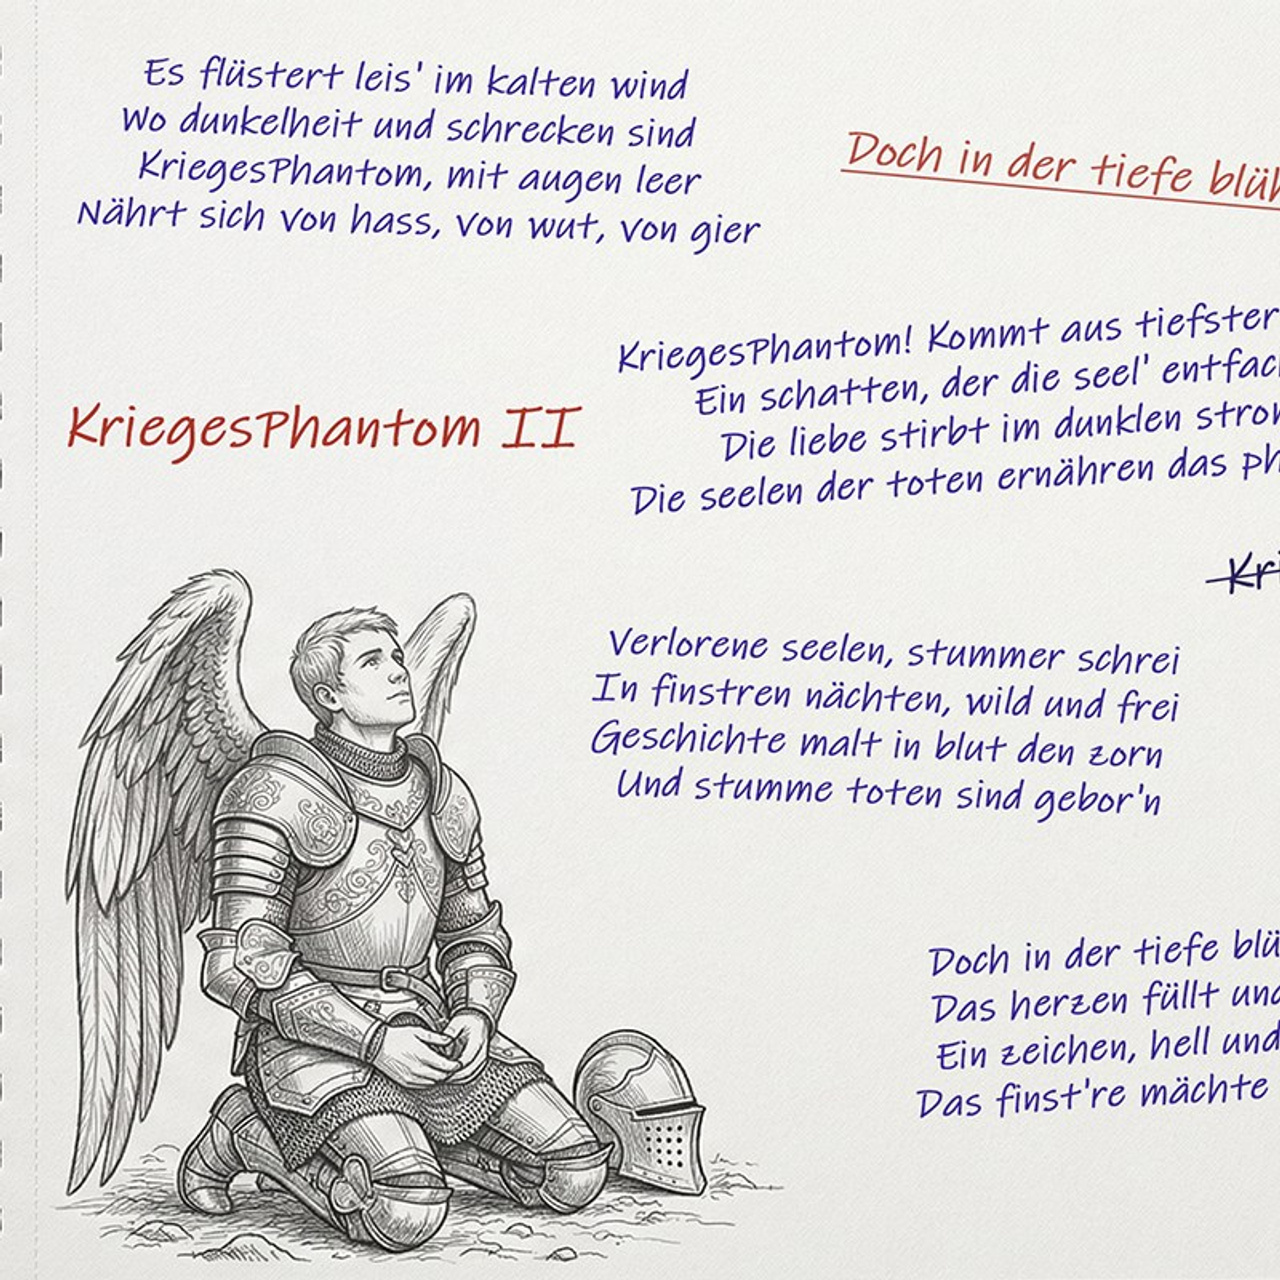 Es flüstert leis' im kalten wind
Wo dunkelheit und schrecken sind
KriegesPhantom, mit augen leer
Nährt sich von hass, von wut, von gier
Doch in der tiefe
KriegesPhantom! Kommt aus tiefster
Ein schatten, der die seel'
Die liebe stirbt im dunklen
Die seelen der toten ernähren das
KriegesPhantom II
Verlorene seelen, stummer schrei
In finstren nächten, wild und frei
Geschichte malt in blut den zorn
Und stumme toten sind gebor'n
Doch in der tiefe
Das herzen füllt
Ein zeichen, hell und
Das finst're mächte